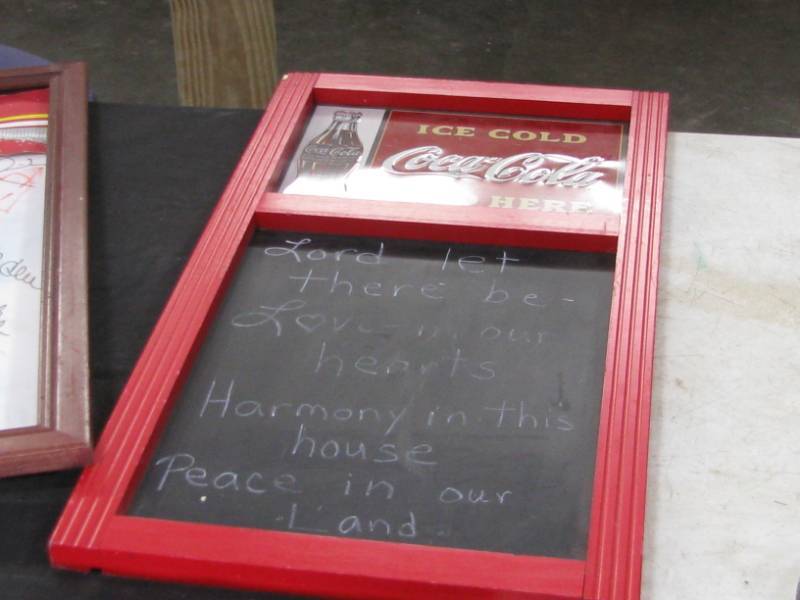 ICE COLD
Coca-Cola
Coca-Cola
HERE
Lord let
there be-
Love in our
hearts
Harmony in this
house
Peace in our
Land